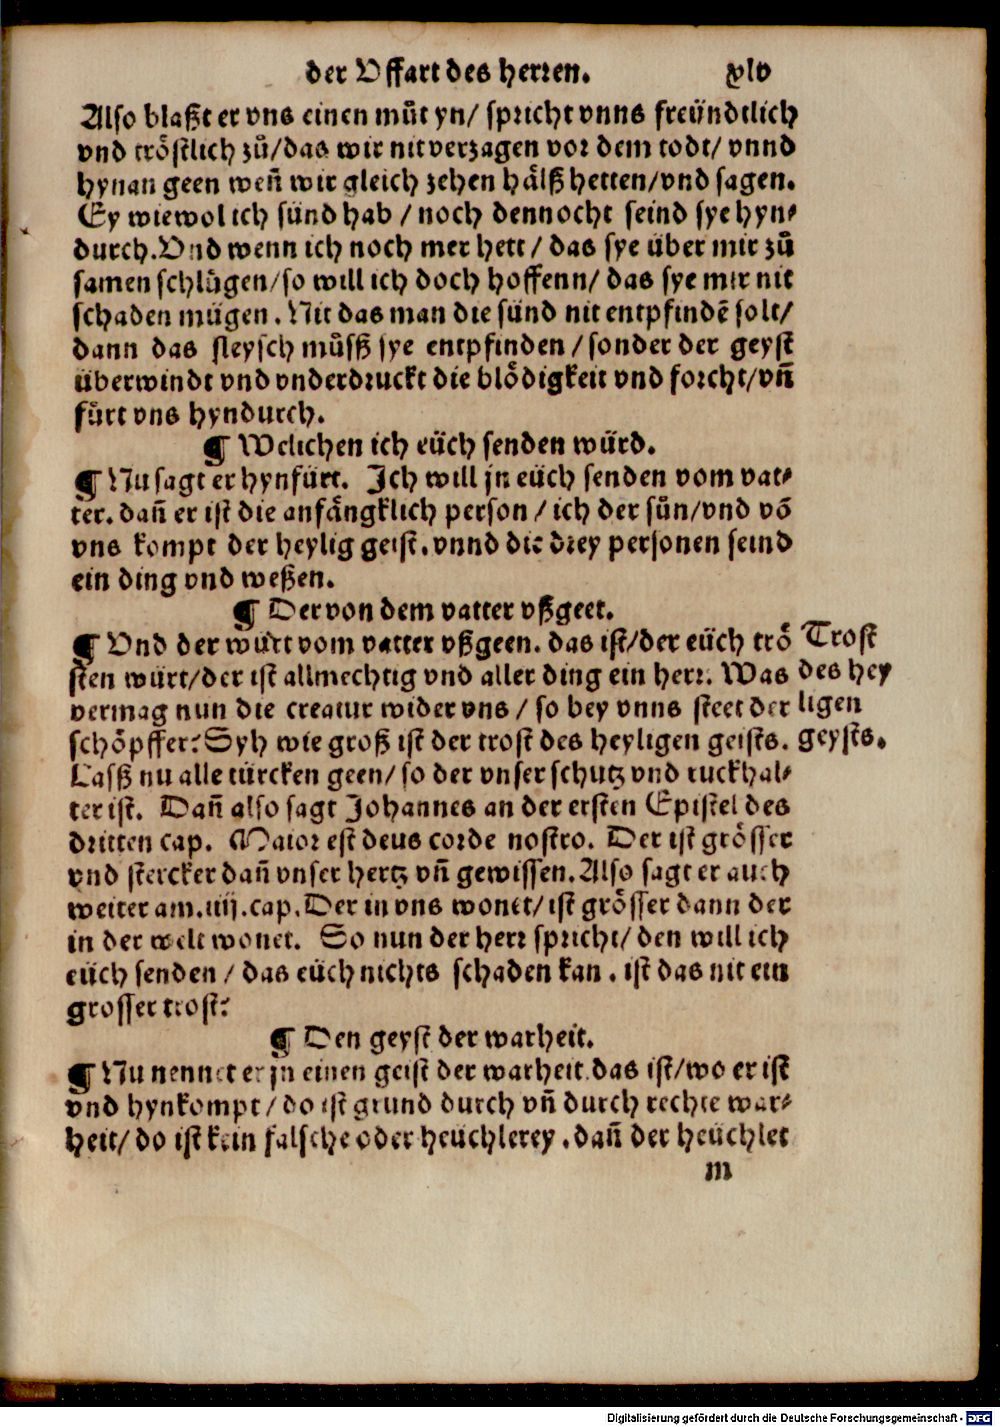 der Uffart des herren. xlv
Also blaßt er vns einen můt yn/ spricht vnns freündtlich
vnd tröstlich zů/das wir nit verzagen vor dem todt/ vnnd
hynan geen weñ wir gleich zehen hälß hetten/vnd sagen.
Ey wiewol ich sünd hab / noch dennocht seind sye hyn⸗
durch. Vnd wenn ich noch mer hett / das sye über mir zů
samen schlügen/so will ich doch hoffenn/ das sye mir nit
schaden mügen. Nit das man die sünd nit entpfindẽ solt/
dann das fleysch můsß sye entpfinden / sonder der geyst
überwindt vnd vnderdruckt die blödigkeit vnd forcht/vñ
fürt vns hyndurch.
¶ Welichen ich eüch senden würd.
¶ Nu sagt er hynfürt. Ich will jn eüch senden vom vat⸗
ter. dañ er ist die anfängklich person / ich der sün/vnd võ
vns kompt der heylig geist. vnnd die drey personen seind
ein ding vnd weßen.
¶ Der von dem vatter vßgeet.
¶ Vnd der würt vom vatter vßgeen. das ist/der eüch trö
sten würt/der ist allmechtig vnd aller ding ein herr. Was
vermag nun die creatur wider vns / so bey vnns steet der
schöpffer? Syh wie groß ist der trost des heyligen geists.
Trost
des hey
ligen
geysts.
Lasß nu alle türcken geen/ so der vnser schutz vnd ruckhal⸗
ter ist. Dañ also sagt Johannes an der ersten Epistel des
dritten cap. Maior est deus corde nostro. Der ist grösser
vnd stercker dañ vnser hertz vñ gewissen. Also sagt er auch
weiter am .iiij. cap. Der in vns wonet/ ist grösser dann der
in der welt wonet. So nun der herr spricht/ den will ich
eüch senden / das eüch nichts schaden kan. ist das nit ein
grosser trost?
¶ Den geyst der warheit.
¶ Nu nennet er jn einen geist der warheit. das ist/wo er ist
vnd hynkompt / do ist grund durch vñ durch rechte war⸗
heit/ do ist kein falsche oder heüchlerey. dañ der heüchler
m
Digitalisierung gefördert durch die Deutsche Forschungsgemeinschaft - DFG